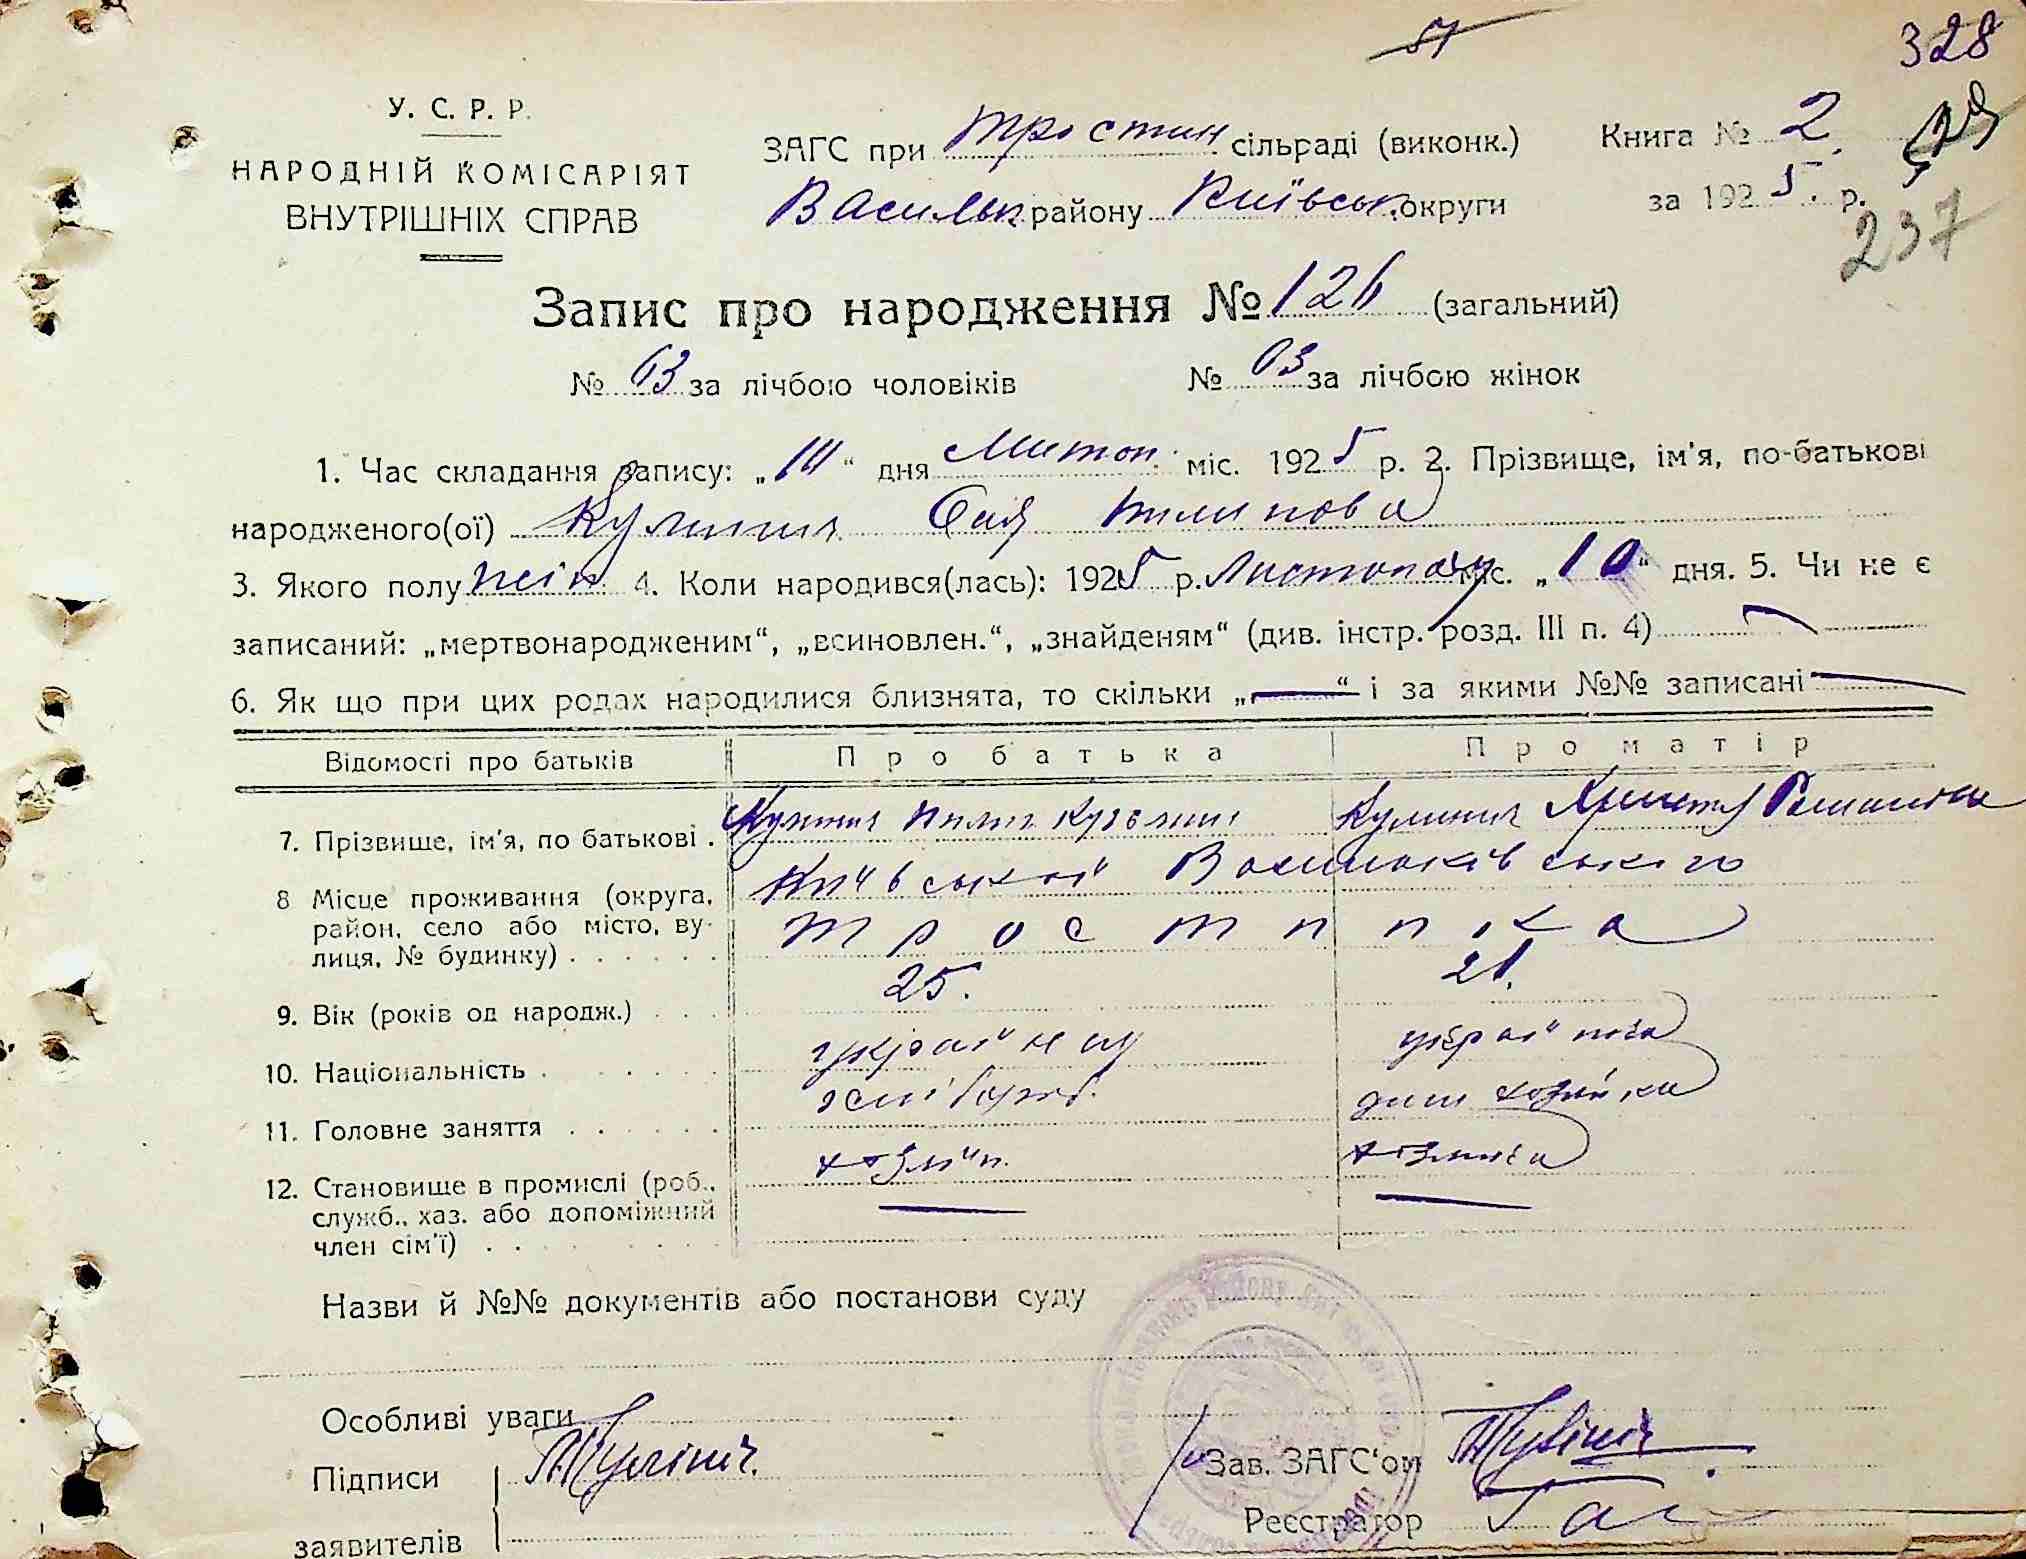 51
328
У. С. Р. Р.
НАРОДНІЙ КОМІСАРІЯТ
ВНУТРІШНІХ СПРАВ
ЗАГС при Тростин. сільраді (виконк.)
Васильк. району Київськ. округи
Книга № 2.
за 1925. р.
237
Запис про народження № 126 (загальний)
№ 63 за лічбою чоловіків № 63 за лічбою жінок
1. Час складання запису: „ “ дня Листоп. міс. 1925 р. 2. Прізвище, ім'я, по-батькові
народженого(ої) Кулинич Пилипова
3. Якого полу жін. 4. Коли народився(лась): 1925 р. Листопаду міс. „10“ дня. 5. Чи не є
записаний: „мертвонародженим“, „всиновлен.“, „знайденям“ (див. інстр. розд. III п. 4)
6. Як що при цих родах народилися близнята, то скільки „—“ і за якими №№ записані —
Відомості про батьків Про батька Про матір
7. Прізвище, ім'я, по батькові . Кулинич Пилип Кузьмич Кулинич
8 Місце проживання (округа, район, село або місто, вулиця, № будинку) Київської Васильківського
Тростинка
9. Вік (років од народж.) 25. 21.
10. Національність українец українка
11. Головне заняття хлібороб. дом хозяйка
12. Становище в промислі (роб., служб., хаз. або допоміжний член сім'ї) хозяїн. хозяйка
Назви й №№ документів або постанови суду
Особливі уваги
Підписи заявителів Кулініч.
Зав. ЗАГС‘ом
Реєстратор